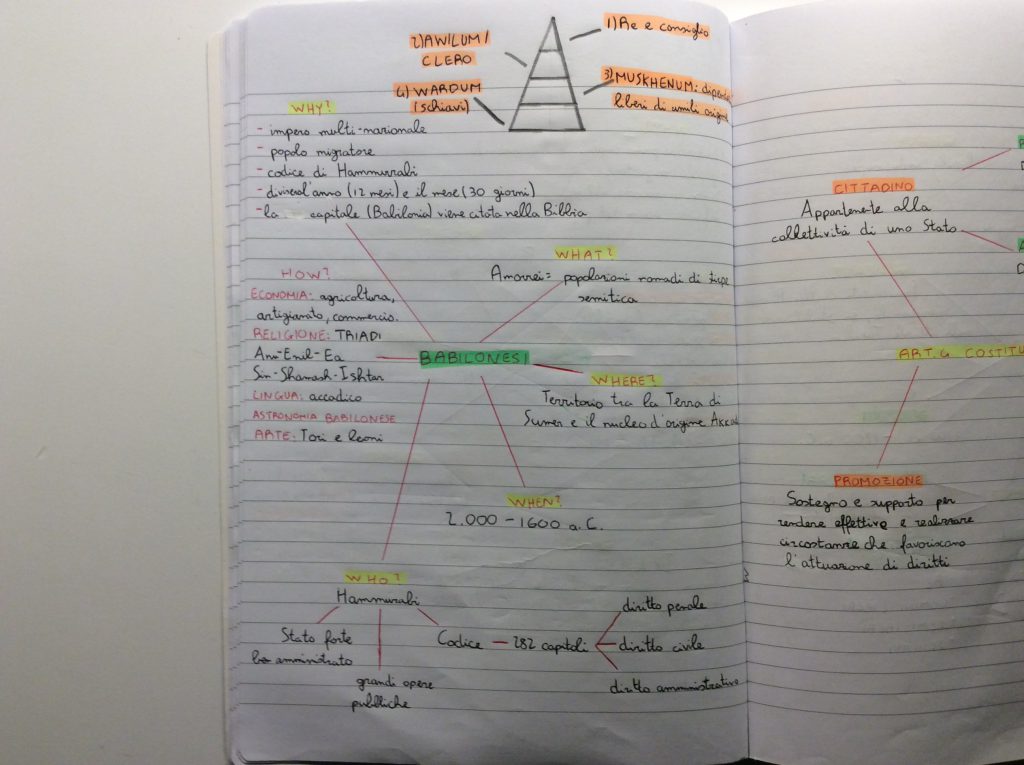 1) Re e consiglio
2) AWILUM /
CLERO
3) MUSKHENUM:
liberi di umili
4) WARDUM
(schiavi)
WHY?
- impero multi-nazionale
- popolo migratore
- codice di Hammurrabi
- divisero l'anno (12 mesi) e il mese (30 giorni)
- la capitale (Babilonia) viene citata nella Bibbia
WHAT?
Amorrei = popolazioni nomadi di stirpe
semitica
HOW?
ECONOMIA: agricoltura,
artigianato, commercio.
RELIGIONE: TRIADI
Anu-Enil-Ea
Sin-Shamash-Ishtar
LINGUA: accadico
ASTRONOMIA BABILONESE
ARTE: Tori e leoni
BABILONESI
WHERE?
Territorio tra la Terra di
Sumer e il nucleo d'origine
WHEN?
2.000 - 1600 a.C.
WHO?
Hammurabi
Stato forte
amministrato
grandi opere
pubbliche
Codice - 282 capitoli
diritto penale
diritto civile
diritto amministrativo
CITTADINO
Appartenente alla
collettività di uno Stato
ART. 4 COSTITU
PROMOZIONE
Sostegno e supporto per
rendere effettive e realizzare
circostanze che favoriscano
l'attuazione di diritti